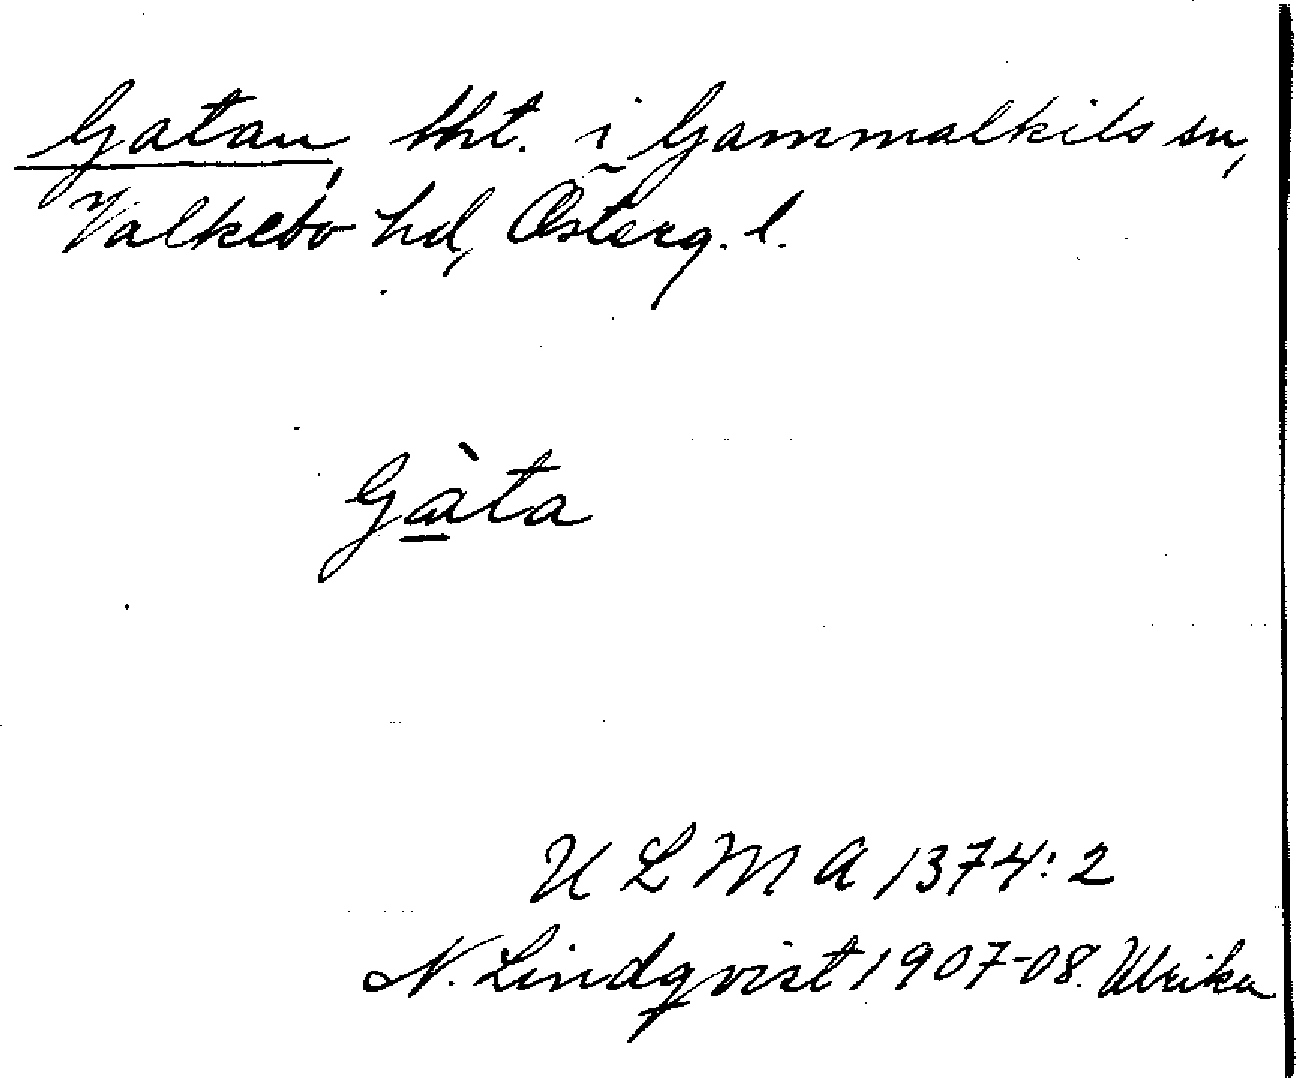 Gatan, tht. i Gammalkils sn,
Valkebo hd, Österg. l.
Gàta
ULMA 1374:2
N. Lindqvist 1907-08. Ulrika